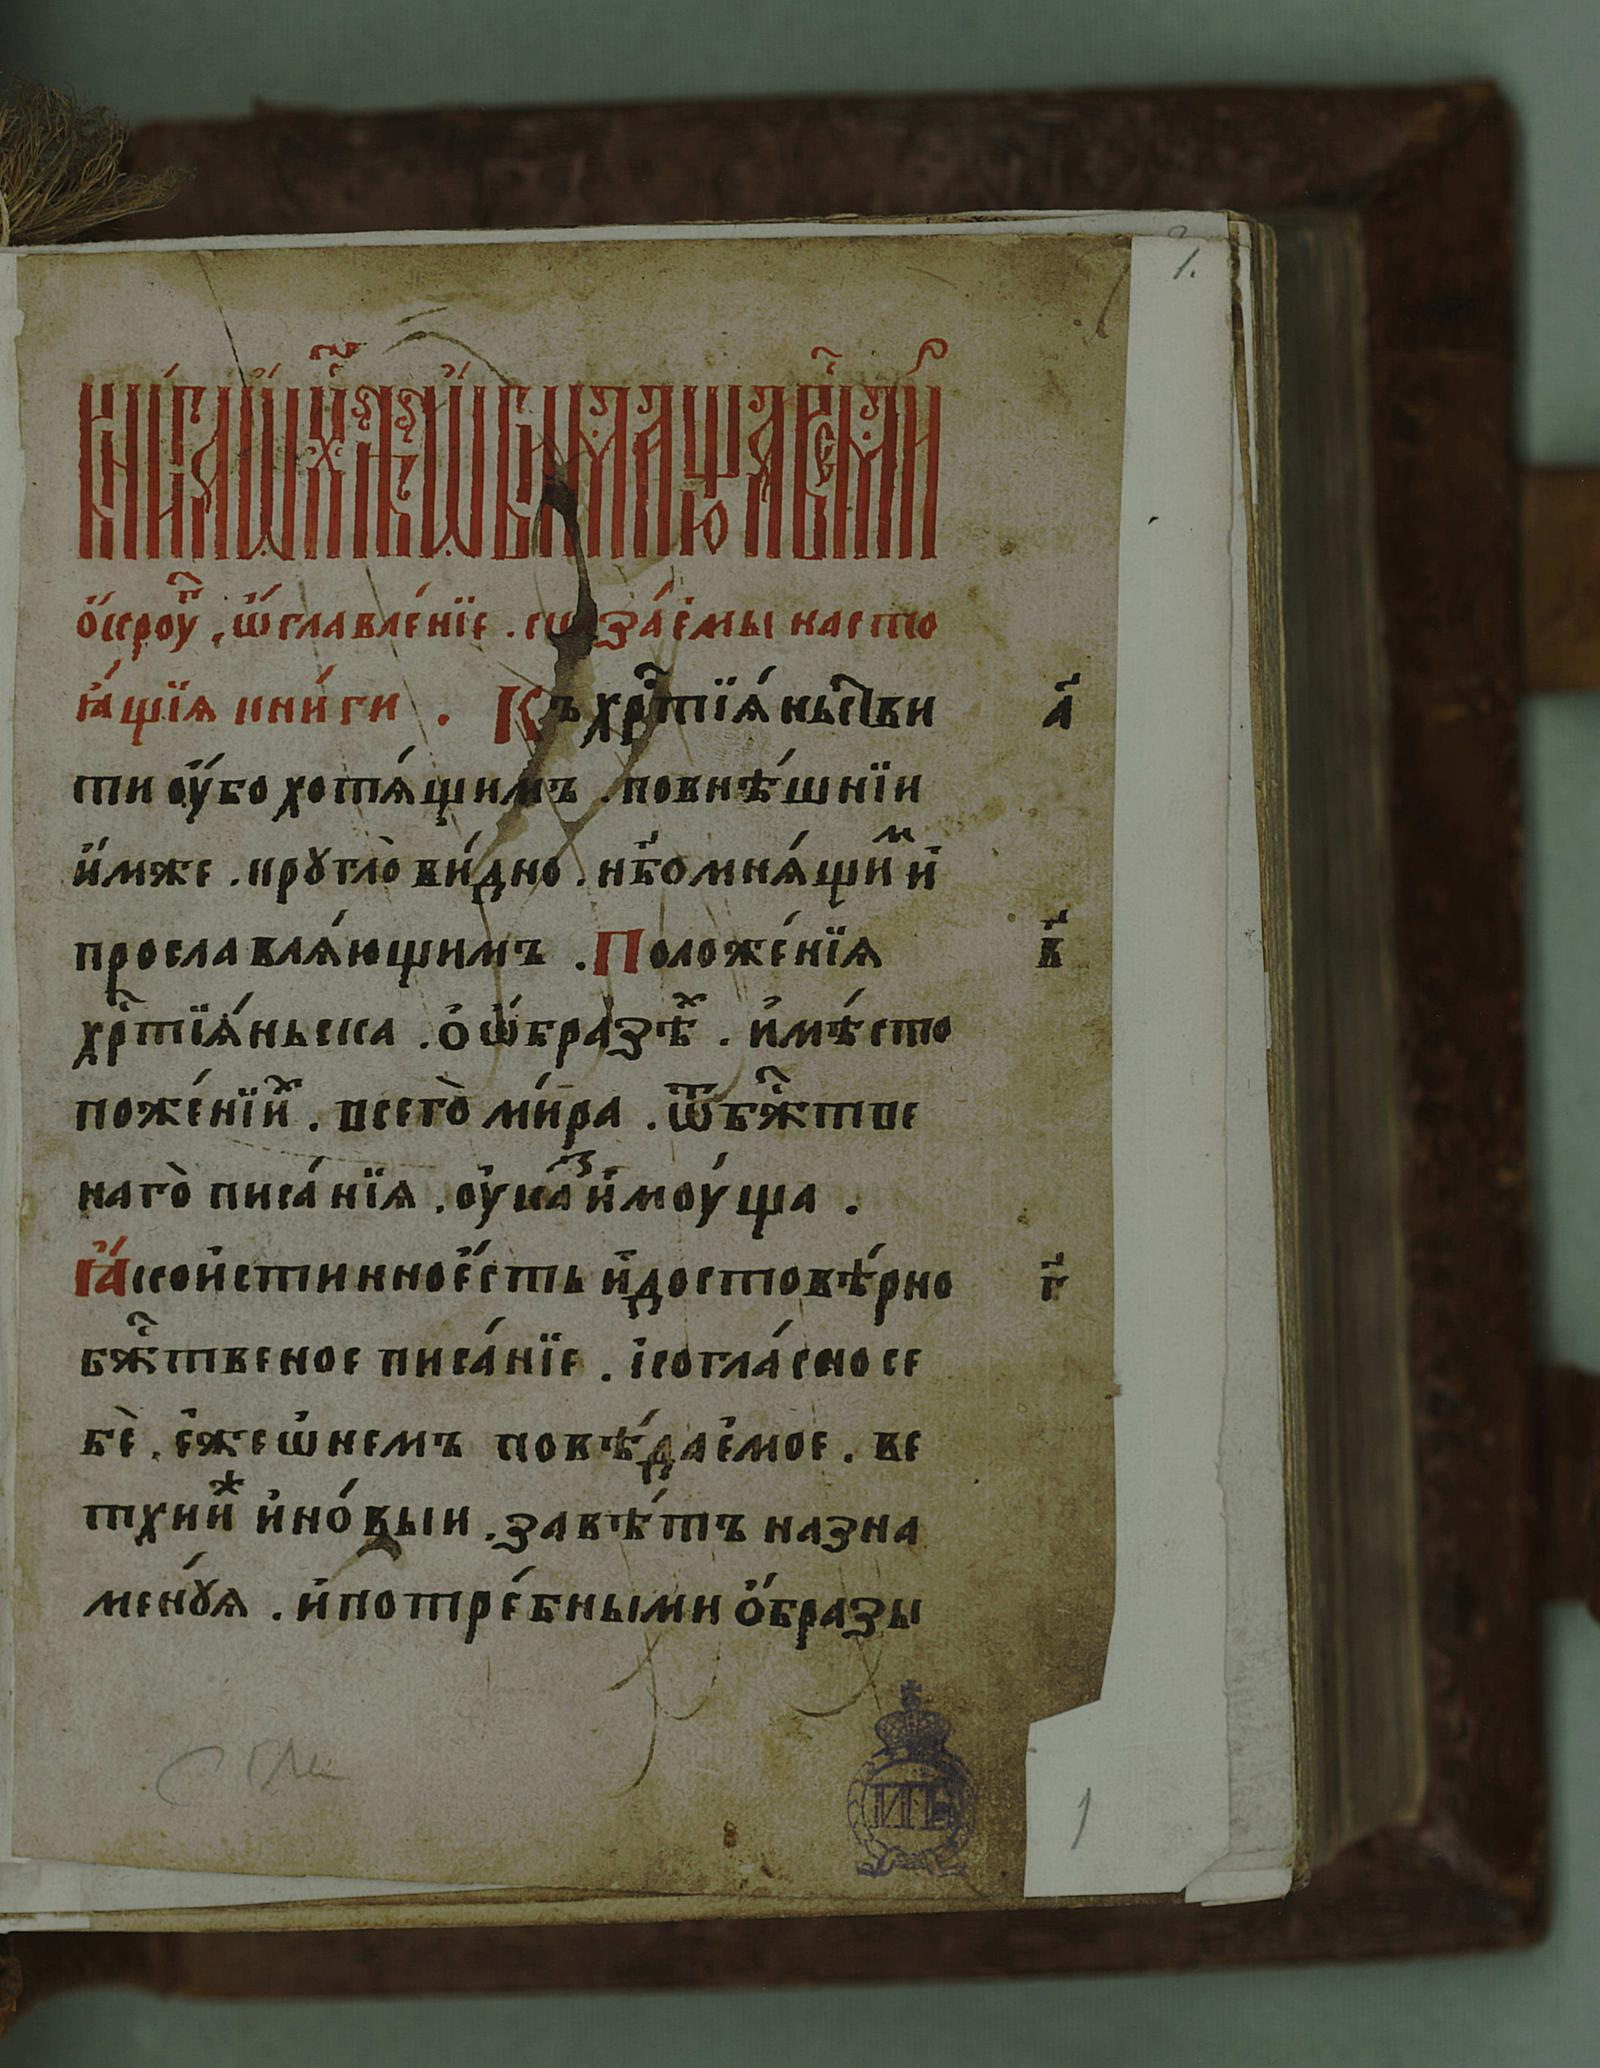 1.
о҆́кроу҆ⷭ҇ . ѿглавле́нїе . ска́зае҆мы насто
ꙗ҆́щїѧ кни́ги . Къ хрⷭ҇тїѧ́ньст҇ви а҃
ти оу҆́бо хотѧ́щимъ . повнѣ́шнїи
и҆́мже . крꙋгло̀ ви́дно . нб҃о мнѧ́щиⷨи и҆
прославлѧ́ющимъ . Положе́нїѧ в҃
хрⷭ҇тїѧ́ньска . о҆ ѡ҆́бразѣⷯ . и҆мѣ́сто
поже́нїиⷯ . всего̀ ми́ра . ѿ бж҇тве
наго̀ писа́нїѧ . оу҆каⷥ и҆моу́ща .
Ꙗ҆́ко и҆стинное҆́сть и҆ достовѣ́рно г҃
бж҇твеное писа́нїе . і҆согла́сно се
бѐ . е҆же ѡ҆ немъ повѣ́дае҆мое . ве
тхииⷤ и҆ но́выи . завѣ́тъ назна
менꙋѧ . и҆ потре́бными о҆́бразы
1